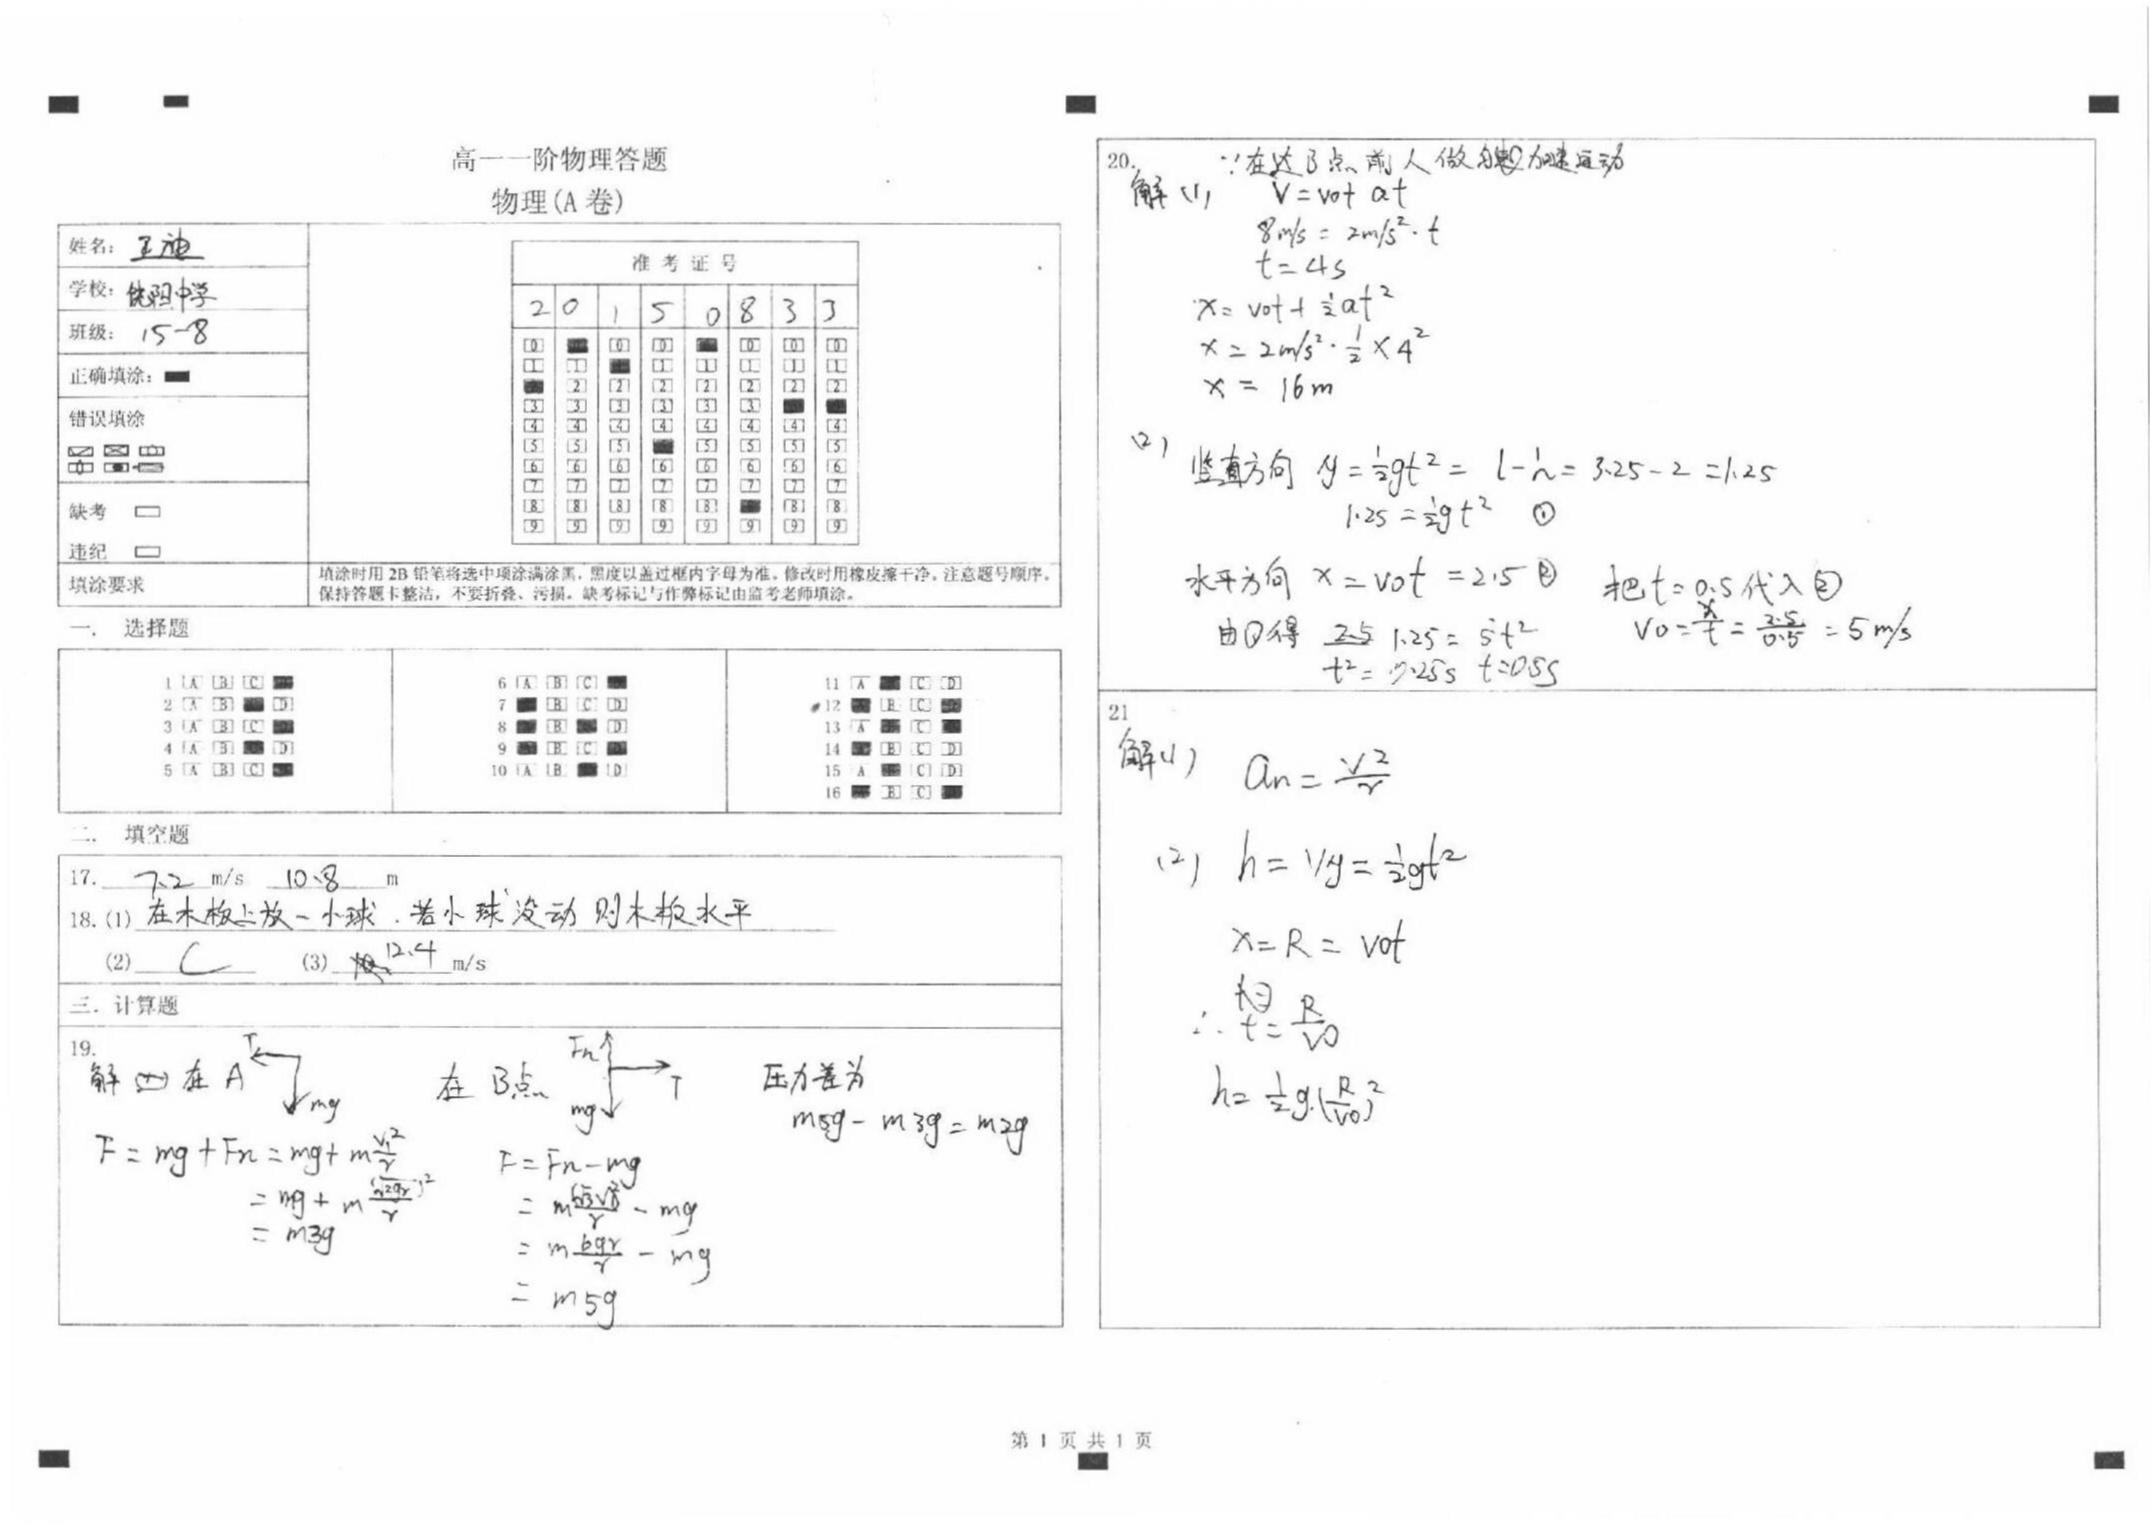 高一一阶物理答题
物理(A 卷)
姓名: 王迪
学校: 饶阳中学
班级: 15-8
正确填涂:
错误填涂
缺考
违纪
填涂要求
准 考 证 号
2 0 1 5 0 8 3 3
[0] [0] [0] [0] [0] [0]
[1] [1] [1] [1] [1] [1] [1]
[2] [2] [2] [2] [2] [2] [2]
[3] [3] [3] [3] [3] [3]
[4] [4] [4] [4] [4] [4] [4] [4]
[5] [5] [5] [5] [5] [5] [5]
[6] [6] [6] [6] [6] [6] [6] [6]
[7] [7] [7] [7] [7] [7] [7] [7]
[8] [8] [8] [8] [8] [8] [8]
[9] [9] [9] [9] [9] [9] [9] [9]
填涂时用 2B 铅笔将选中项涂满涂黑，黑度以盖过框内字母为准。修改时用橡皮擦干净。注意题号顺序。
保持答题卡整洁，不要折叠、污损。缺考标记与作弊标记由监考老师填涂。
一. 选择题
1 [A] [B] [C]
2 [A] [B] [D]
3 [A] [B] [C]
4 [A] [B] [D]
5 [A] [B] [C]
6 [A] [B] [C]
7 [B] [C] [D]
8 [B] [D]
9 [B] [C]
10 [A] [B] [D]
11 [A] [C] [D]
12 [B] [C]
13 [A] [C]
14 [B] [C] [D]
15 [A] [C] [D]
16 [B] [C]
二. 填空题
17. 7.2 m/s 10.8 m
18. (1) 在木板上放一小球．若小球没动则木板水平
(2) C (3) 12.4 m/s
三. 计算题
19.
解 在 A T mg
F = mg + Fn = mg + m v₁²/r
= mg + m (√2gr)²/r
= m3g
在 B点 Fn T mg
F = Fn - mg
= m - mg
= m 6gr/r - mg
= m5g
压力差为
m5g - m3g = m2g
20. ∵在达B点前人做匀加速运动
解 (1) V = v0 + at
8m/s = 2m/s² · t
t = 4s
x = v0t + ½at²
x = 2m/s² · ½ × 4²
x = 16m
(2) 竖直方向 y = ½gt² = l - h = 3.25 - 2 = 1.25
1.25 = ½gt² ①
水平方向 x = v0t = 2.5 ② 把 t = 0.5 代入②
由①得 1.25 = 5t² v0 = x/t = 2.5/0.5 = 5 m/s
t² = 0.25s t = 0.5s
21
解(1) an = v²/r
(2) h = Vy = ½gt²
x = R = v0t
∴ t = R/v0
h = ½g·(R/v0)²
第 1 页 共 1 页